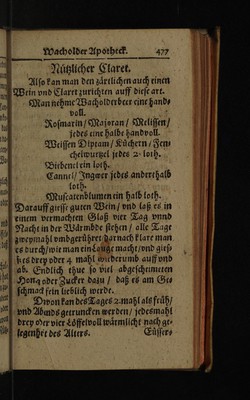 Wacholder Apotheck. 477
Nützlicher Claret.
Also kan man den zärtlichen auch einen
Wein und Claret zurichten auff diese art.
Man nehme Wacholderbeer eine hand-
voll.
Rosmarin/ Majoran/ Melissen/
jedes eine halbe handvoll.
Weissen Diptam/ Küchern/ Fen-
chelwurtzel jedes 2. loth.
Bibenel ein loth.
Cannel/ Ingwer jedes anderthalb
loth.
Muscatenblumen ein halb loth.
Darauff geuß guten Wein/ und laß es in
einem vermachten Glaß vier Tag unnd
Nacht in der Wärmbde stehen/ alle Tag
zweymahl umbgerührt darnach klare man
es durch/ wie man ein Lauge macht/ und gieß
hes drey oder 4 mahl widerumb auff und
ab. Endlich thue so viel abgescheimten
Honig oder Zucker dazu/ daß es am Ge-
schmack fein lieblich werde.
Divon kan des Tages 2. mahl als früh/
und Abends getruncken werden/ jedesmahl
drey oder vier Löffel voll wärmlicht nach ge-
legenheit des Alters. Eüsser-